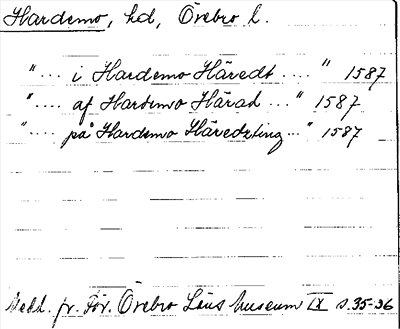 Hardemo, hd, Örebro l.
".... i Hardemo Häredt ...." 1587
".... af Hardemo Härad ..." 1587
".... på Hardemo Häredzting ..." 1587
Medd. fr. För. Örebro Läns Museum IX s. 35-36